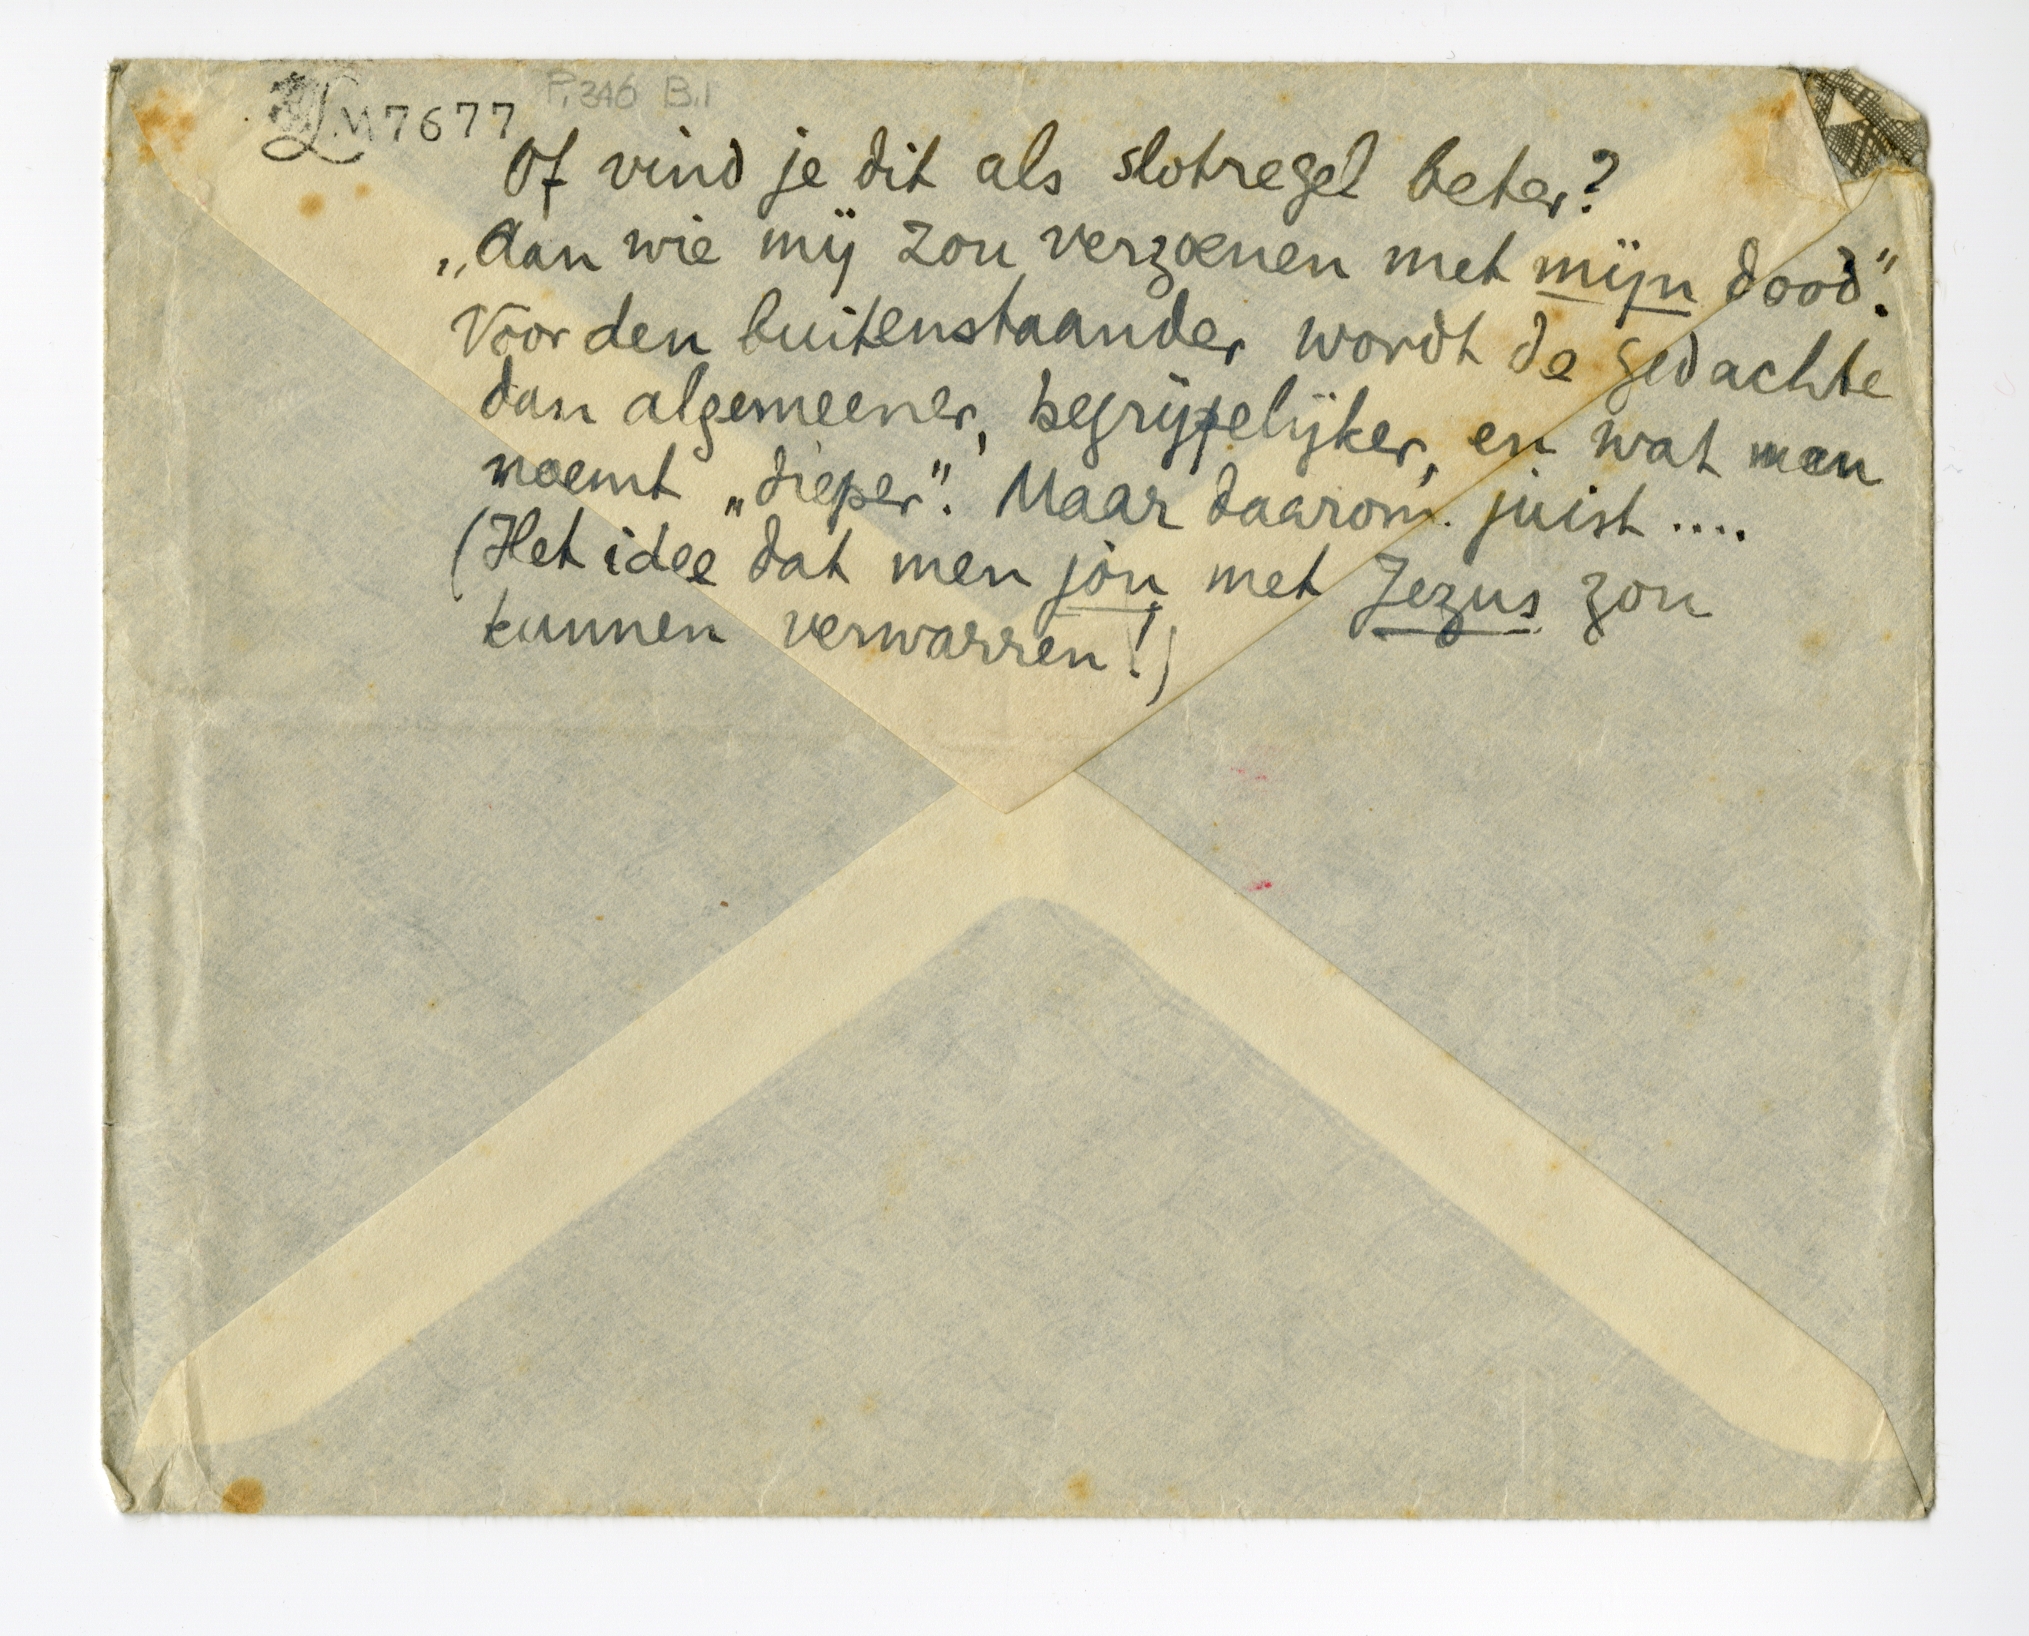 LM 7677 P. 346 B.1
Of vind je dit als slotregel beter?
„Aan wie mij zou verzoenen met mijn dood".
Voor den buitenstaander wordt de gedachte
dan algemeener, begrijpelijker, en wat men
noemt „dieper". Maar daarom juist ....
(Het idee dat men jòu met Jezus zou
kunnen verwarren!)